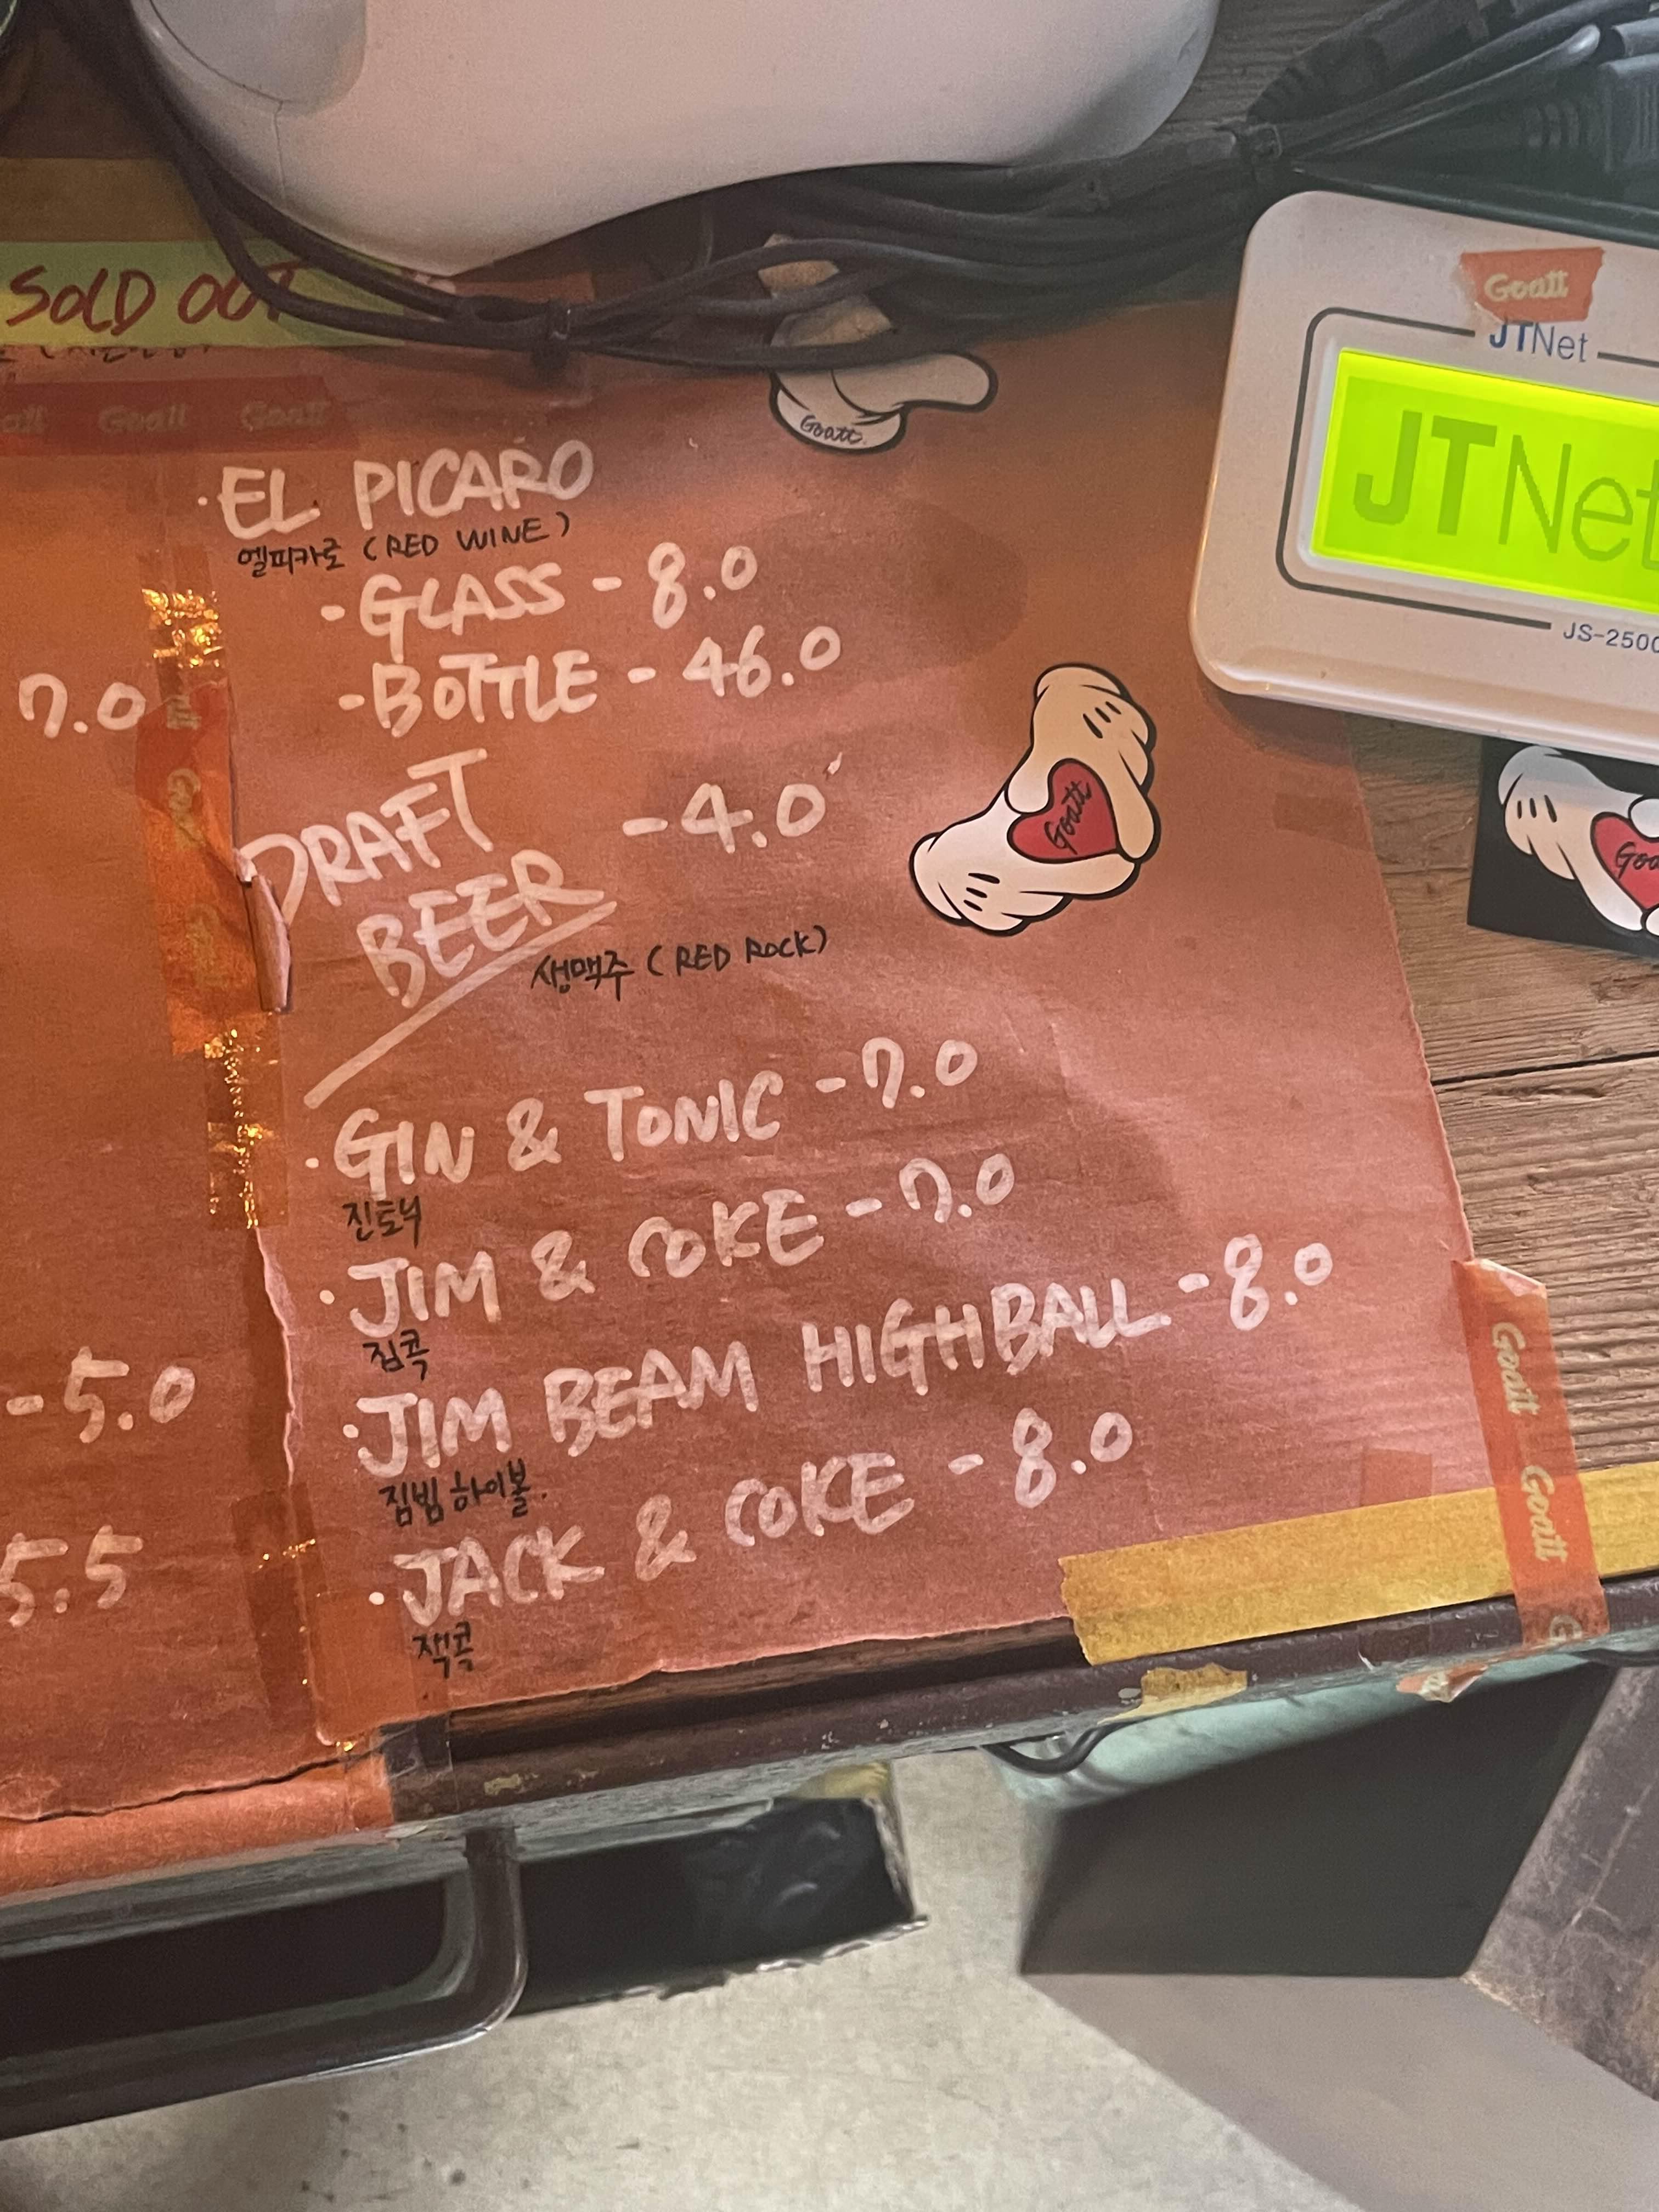 SOLD OUT
Goatt Goatt
Goatt
EL PICARO
엘피카로 (RED WINE)
- GLASS - 8.0
- BOTTLE - 46.0
7.0
DRAFT
BEER - 4.0
생맥주 (RED ROCK)
· GIN & TONIC - 7.0
진토닉
· JIM & COKE - 7.0
짐콕
· JIM BEAM HIGHBALL - 8.0
짐빔 하이볼.
· JACK & COKE - 8.0
잭콕
- 5.0
5.5
Goatt
Goatt
JTNet
JTNet
JS-2500
Goatt Goatt